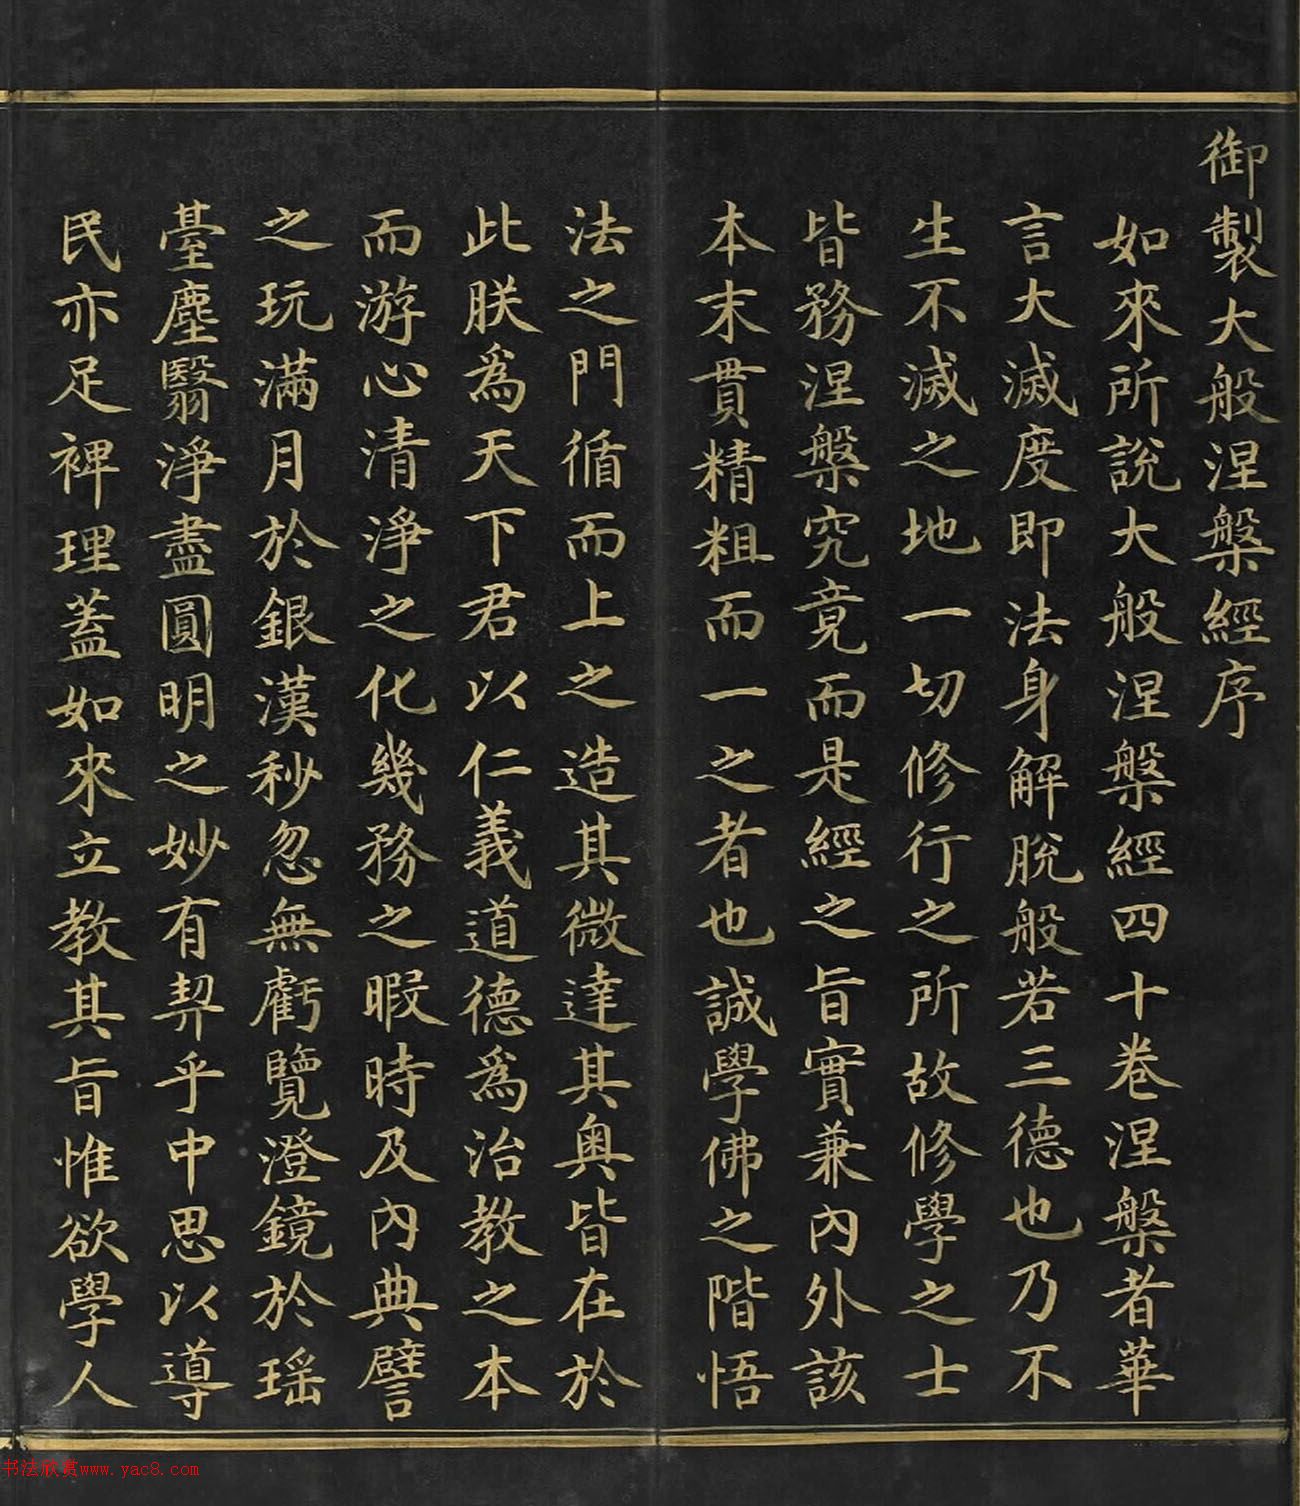 御製大般涅槃經序
如來所說大般涅槃經四十卷涅槃者華
言大滅度即法身解脫般若三德也乃不
生不滅之地一切修行之所故修學之士
皆務涅槃究竟而是經之旨實兼內外該
本末貫精粗而一之者也誠學佛之階悟
法之門循而上之造其微達其奥皆在於
此朕爲天下君以仁義道德爲治教之本
而游心清淨之化幾務之暇時及內典譬
之玩滿月於銀漢秒忽無虧覽澄鏡於瑶
臺塵翳淨盡圓明之妙有契乎中思以導
民亦足裨理蓋如來立教其旨惟欲學人
书法欣赏www.yac8.com